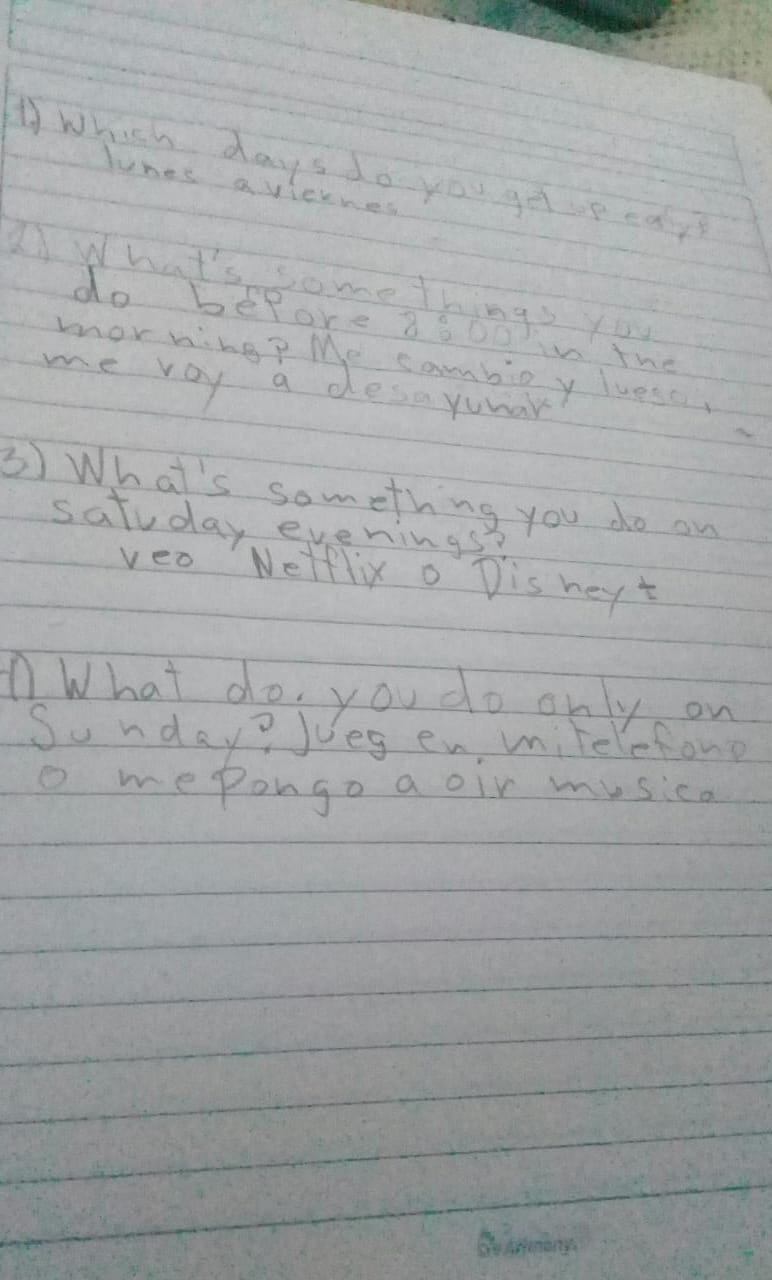 1) Which days do you get up early?
lunes a viernes
2) What's somethings you
do before 8:00 in the
morning? Me cambio y luego,
me voy a desayunar
3) What's something you do on
satuday evenings?
veo Netflix o Disney+
1) What do. you do only on
Sunday? Jueg en mi telefono
o me pongo a oir musica